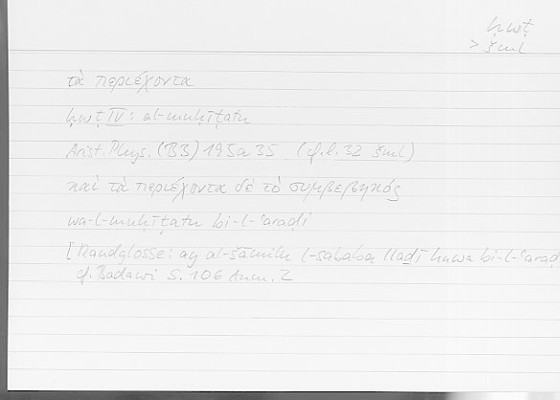 ḥwṭ
> šml
τὰ περιέχοντα
ḥwṭ IV: al-muḥīṭatu
Arist. Phys. (B3) 195a35 (cf. l. 32 šml)
καὶ τὰ περιέχοντα δὲ τὸ συμβεβηκός
wa-l-muḥīṭatu bi-l-ʿaraḍi
[Randglosse: ay al-šāmilu l-sababa llaḏī huwa bi-l-ʿaraḍ
cf. Badawi S. 106 Anm. 2